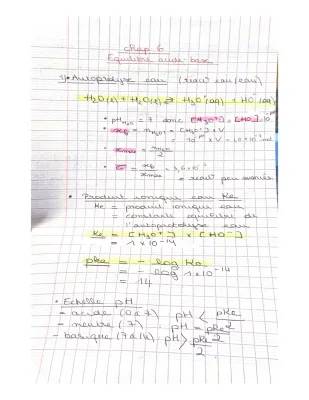 Chap 6
Equilibre acide-base
1) • Autoprotolyse eau (réact° eau/eau)
H₂O(l) + H₂O(l) ⇌ H₃O⁺(aq) + HO⁻(aq)
• pH H₂O = 7 donc [H₃O⁺] = [HO⁻] = 10⁻⁷
• xf = nH₃O⁺ = [H₃O⁺] × V
= 10⁻⁷ × V = 1,0 × 10⁻⁷ mol
• xmax = nH₂O/2
• τ = xf/xmax = 3,6×10⁻⁹
= réact° peu
• Produit ionique eau Ke
Ke = produit ionique eau
= constante équilibre de
l'autoprotolyse eau
Ke = [H₃O⁺] × [HO⁻]
= 1 × 10⁻¹⁴
pKe = - log Ke
= - log 1×10⁻¹⁴
= 14
• Echelle pH
- acide (0 à 7) pH < pKe/2
- neutre (7) pH = pKe/2
- basique (7 à 14) pH > pKe/2